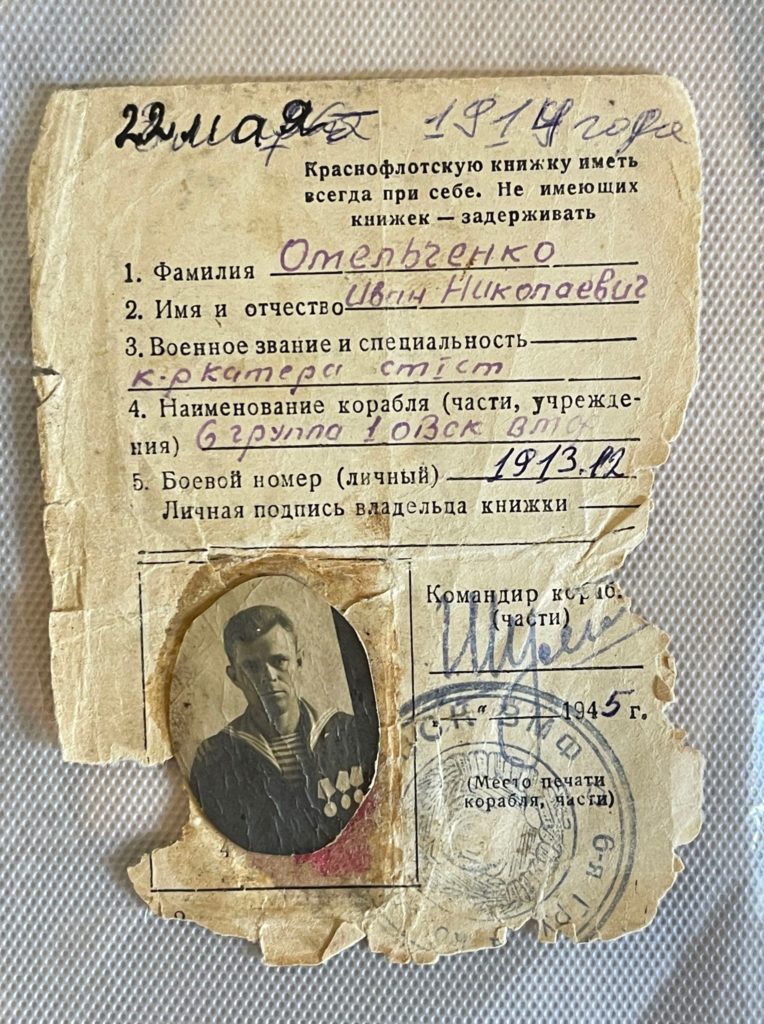 22 мая 1914 года
Краснофлотскую книжку иметь
всегда при себе. Не имеющих
книжек — задерживать
1. Фамилия Омельченко
2. Имя и отчество Иван Николаевич
3. Военное звание и специальность
к-р катера ст 1 ст
4. Наименование корабля (части, учрежде-
ния) 6 группа 1 ОВСК ВМФ
5. Боевой номер (личный) 1913.12
Личная подпись владельца книжки
Командир кораб.
(части)
„ — “ 1945 г.
(Место печати
корабля, части)
СК ВМФ
6-я ГРУ